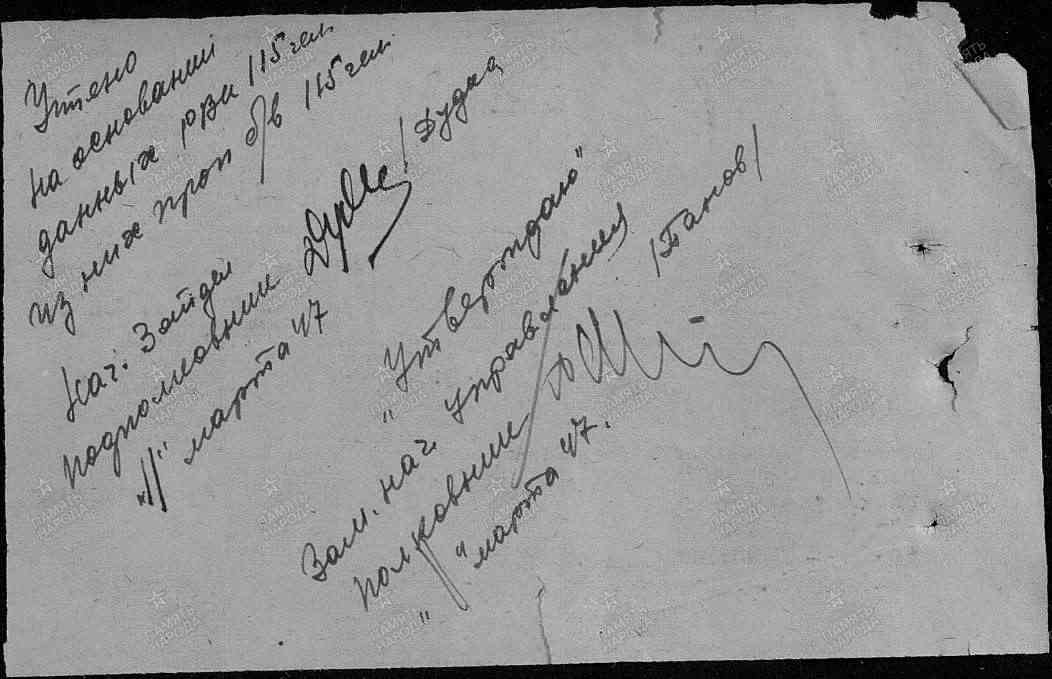 Учтено
на основании
данных РВК 115 чел.
из них проп б/в 115 чел.
Нач.
подполковник /Дудка
"11" марта 47
"Утверждаю"
Зам. нач. управления
полковник /Панов/
" " марта 47.
ПАМЯТЬ НАРОДА